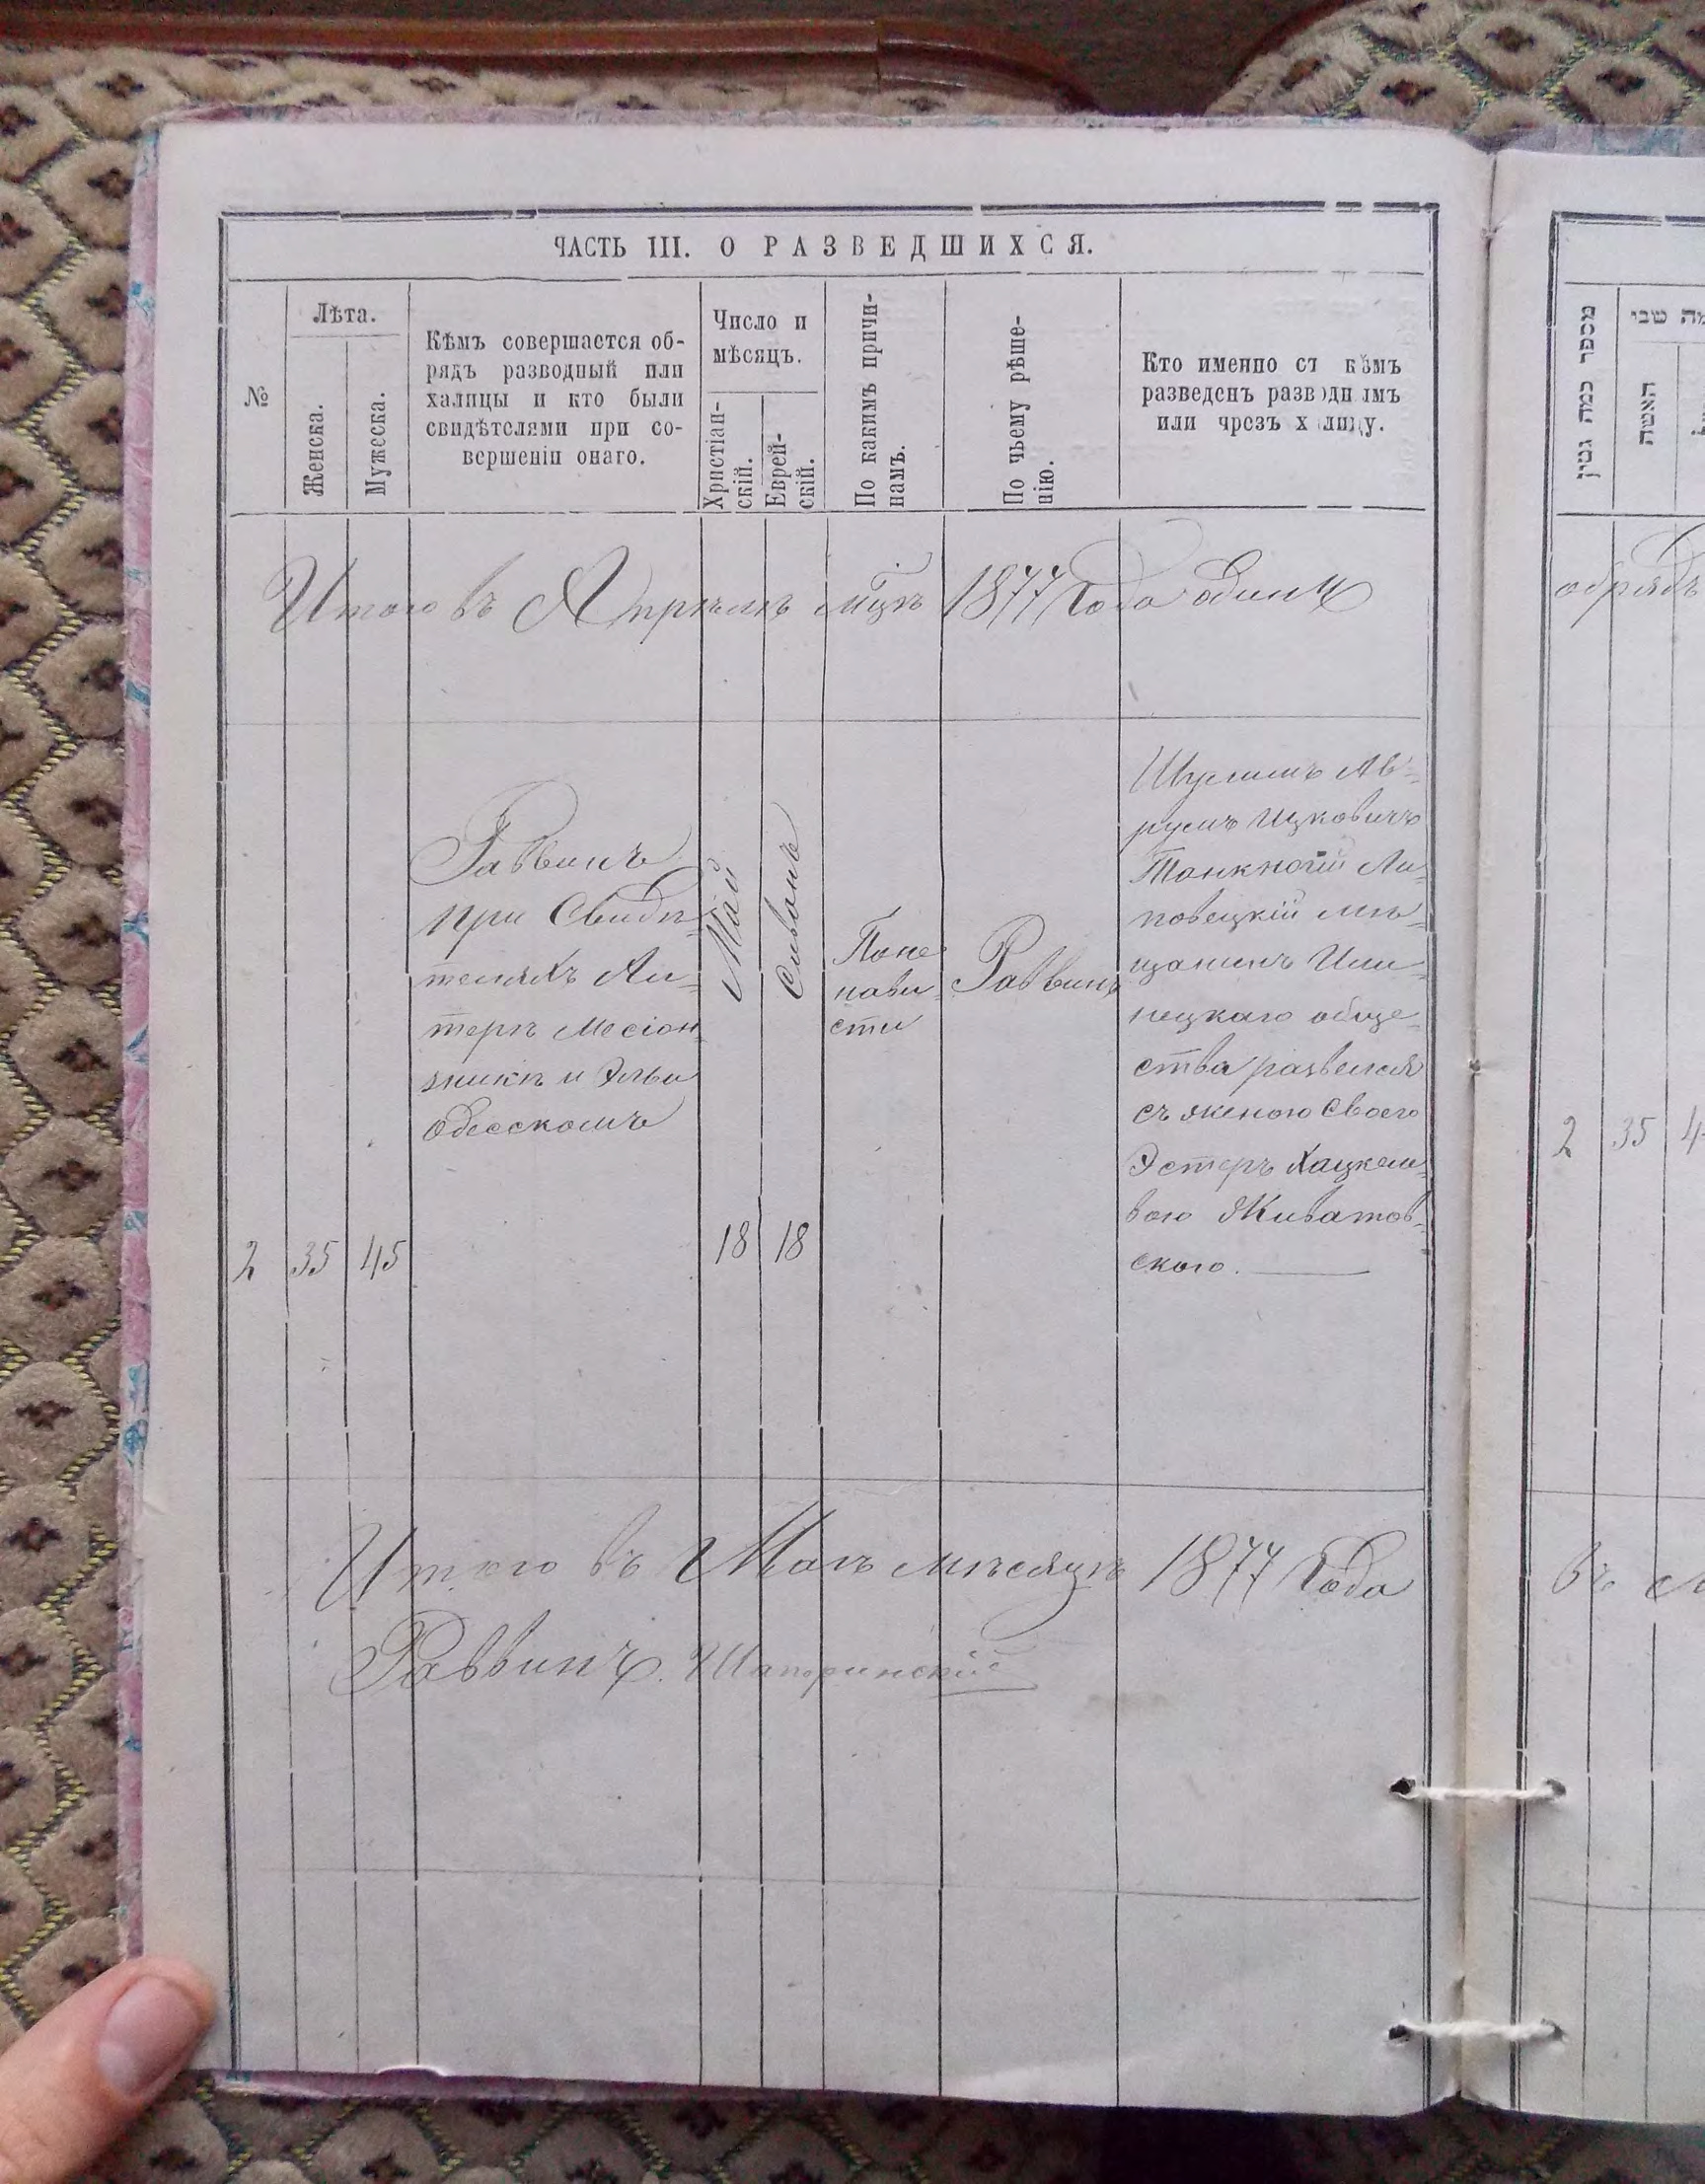 ЧАСТЬ III. О РАЗВЕДШИХСЯ.
№
Лѣта.
Женска.
Мужеска.
Кѣмъ совершается об-
рядъ разводный или
халицы и кто были
свидѣтелями при со-
вершеніи онаго.
Число и
мѣсяцъ.
Христіан-
скій.
Еврей-
скій.
По какимъ причи-
намъ.
По чьему рѣше-
нію.
Кто именно съ кѣмъ
разведенъ разводнымъ
или чрезъ халицу.
Итого въ Апрѣлѣ мцѣ 1877 Года одинъ
2
35
45
Раввинъ
при Свидѣ-
теляхъ Ли-
терѣ Месіон
зникѣ и Эльи
Одесскомъ
Май
18
Сивонъ
18
Поне
нави-
сти
Раввинъ
Шулимъ Ав-
румъ Ицковичъ
Ли-
повецкій мѣ-
щанинъ Или-
нецкаго обще-
ства развелся
съ женою Своею
Эстеръ Хацкел-
вою Живатов-
ского.
Итого въ Маѣ мѣсяцѣ 1877 Года
Раввинъ
מספר כמה גטין
האשה
обрядъ
2
35
въ